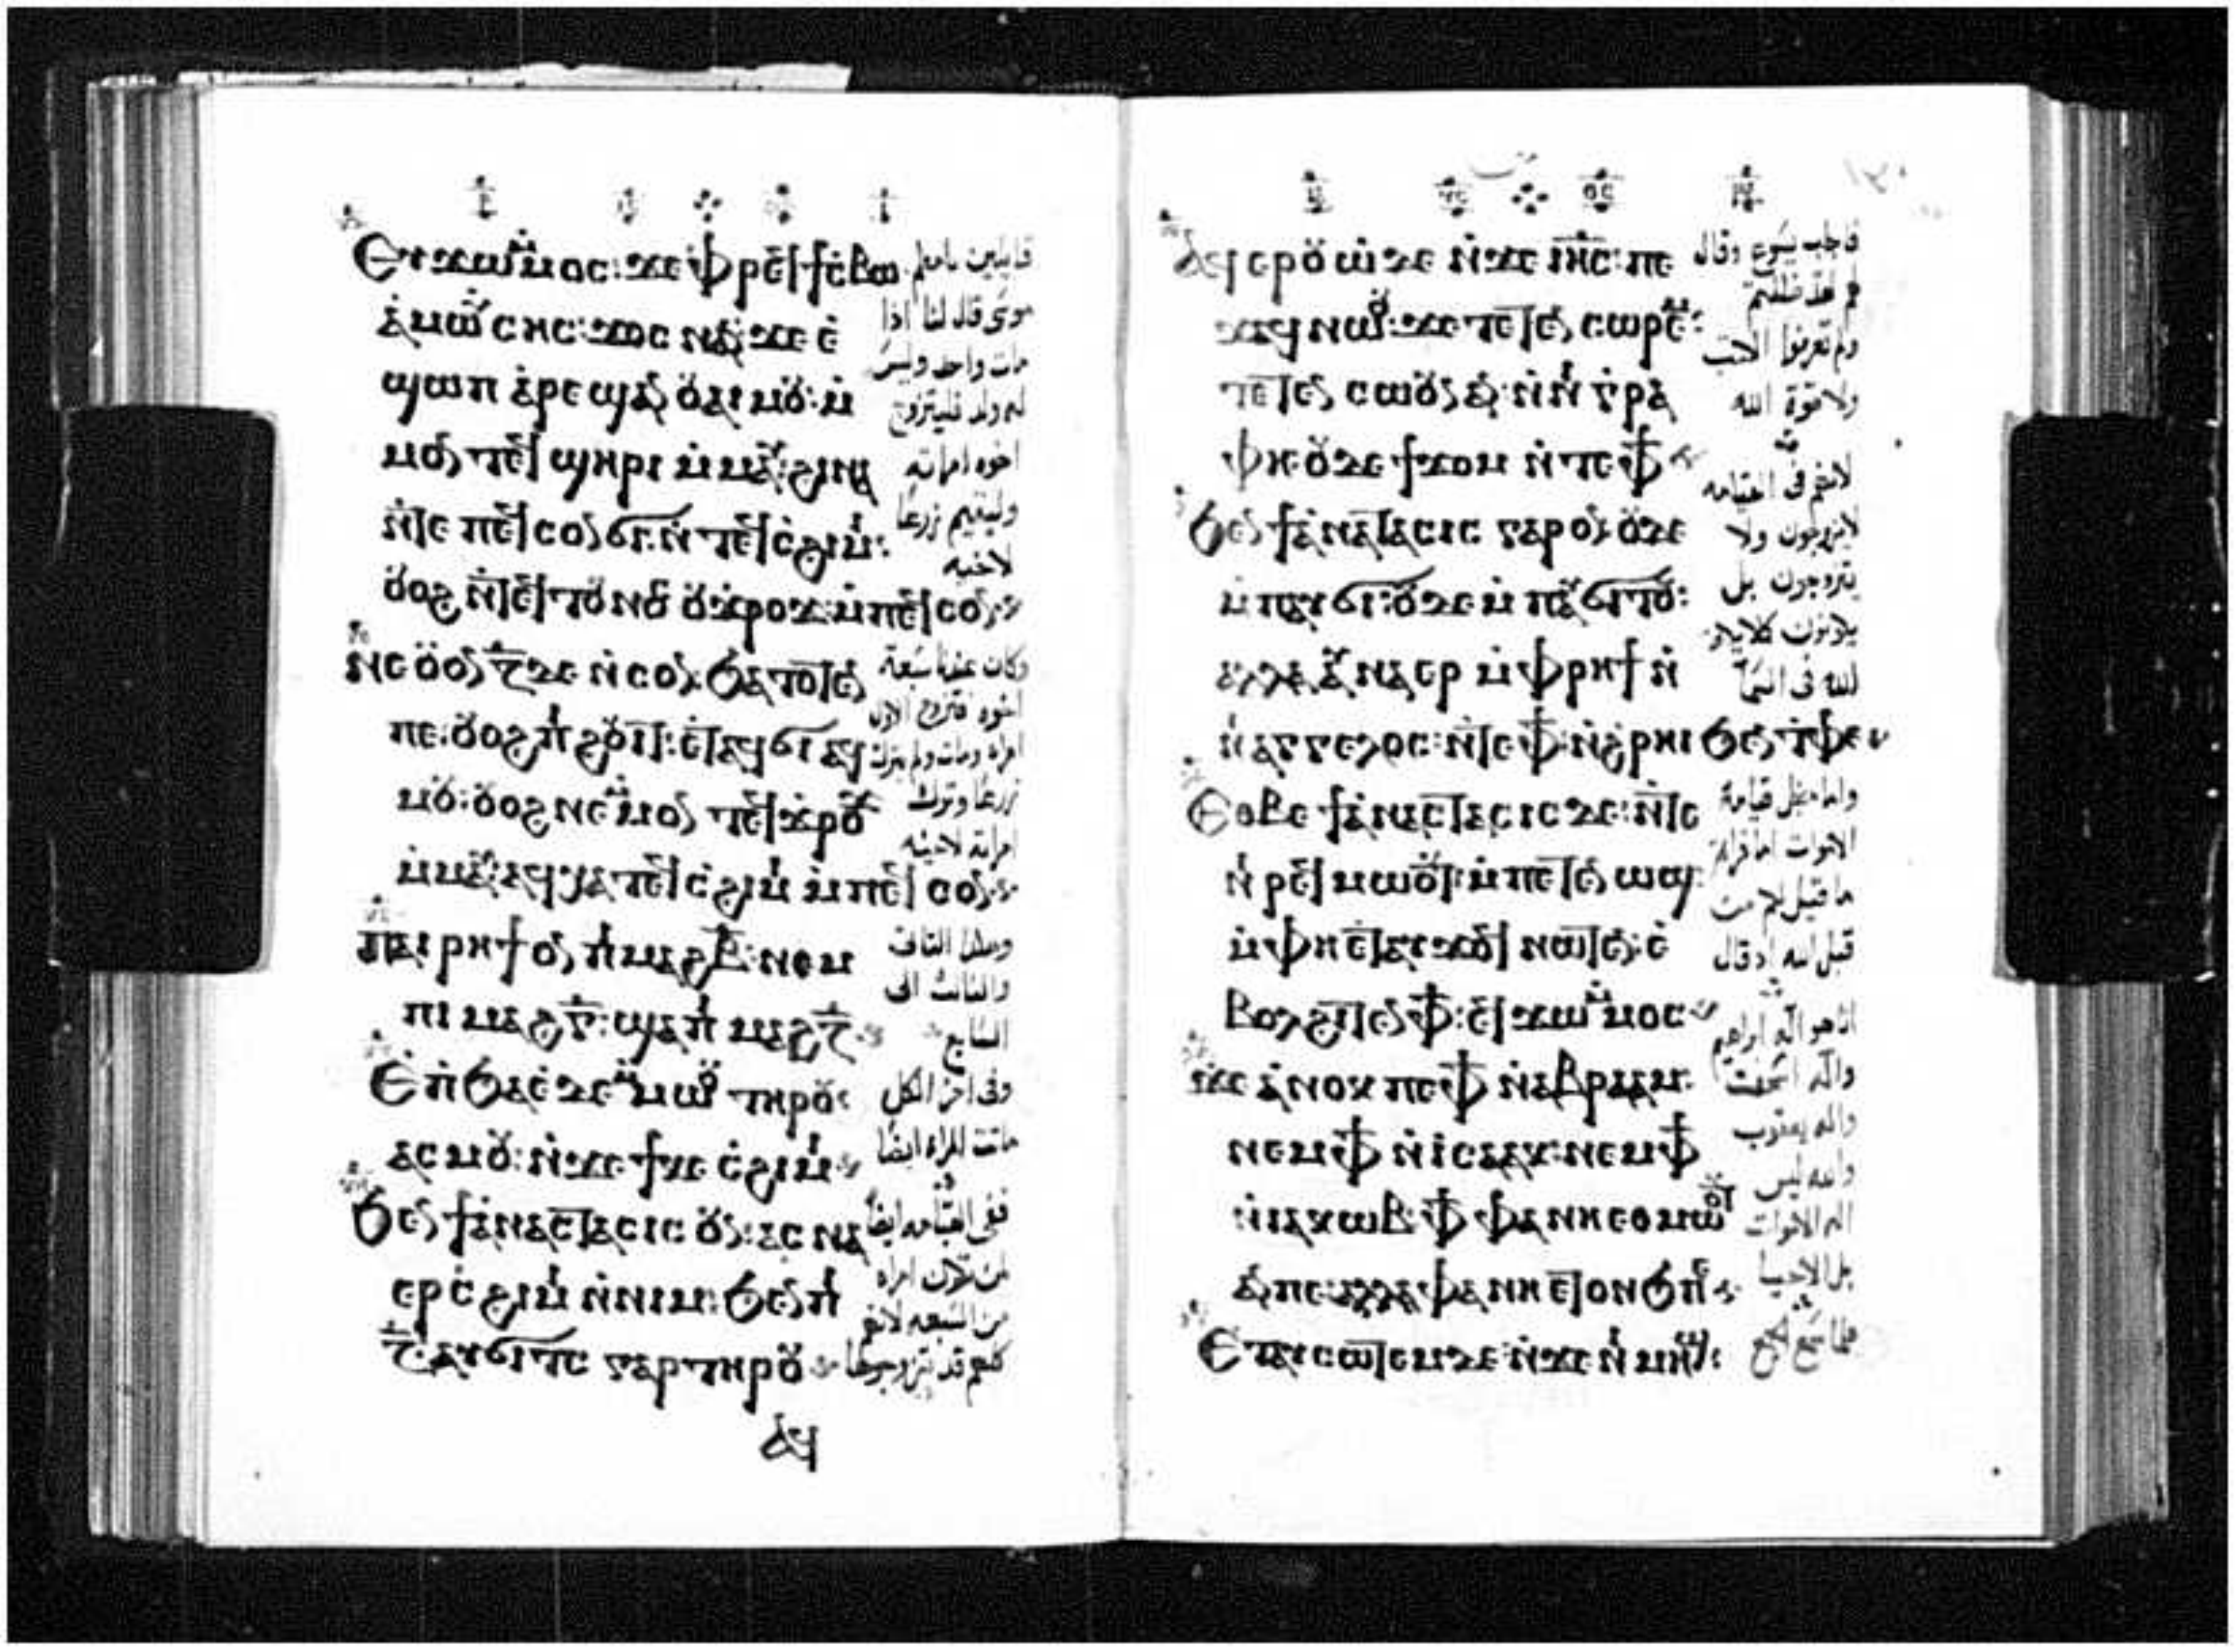 Ⲉⲩϫⲱⲙ̇ⲙⲟⲥ: ϫⲉ ⲫⲣⲉϥϯⲥⲃⲱ
ⲁ̇ⲙⲱⲥⲏⲥ: ϫⲟⲥ ⲛⲁⲛ: ϫⲉ ⲉ̇
ϣⲱⲡ ⲁ̇ⲣⲉϣⲁⲛ ⲟⲩⲁⲓ ⲙⲟⲩ: ⲙ̇
ⲙⲟⲛ ⲧⲉϥϣⲏⲣⲓ ⲙ̇ⲙⲁⲩ: ϩⲓⲛⲁ
ⲛ̇ⲧⲉ ⲡⲉϥⲥⲟⲛ ϭⲓ: ⲛ̇ⲧⲉϥⲥ̇ϩⲓⲙⲓ:
ⲟⲩⲟϩ ⲛ̇ⲧⲉϥⲧⲟⲩⲛⲟⲥ ⲟⲩϫ̇ⲣⲟϫ: ⲙ̇ⲡⲉϥⲥⲟⲛ
ⲛⲉ ⲟⲩⲟⲛ ⲍ̅ ⲇⲉ ⲛ̇ⲥⲟⲛ: ϧⲁⲧⲟⲧⲉⲛ
ⲡⲉ: ⲟⲩⲟϩ ⲡⲓϩⲟⲩⲓⲧ: ⲉ̇ⲧⲁϥϭⲓ ⲁϥ
ⲙⲟⲩ: ⲟⲩⲟϩ ⲛⲉⲙ̇ⲙⲟⲛ ⲧⲉϥϫ̇ⲣⲟϫ
ⲙ̇ⲙⲁⲩ: ⲁϥⲭⲁ ⲧⲉϥⲥ̇ϩⲓⲙⲓ ⲙ̇ⲡⲉϥⲥⲟⲛ
ⲡⲁⲓⲣⲏϯ ⲟⲛ ⲡⲓⲙⲁϩⲃ̅: ⲛⲉⲙ
ⲡⲓⲙⲁϩⲅ̅: ϣⲁ ⲡⲓⲙⲁϩⲍ̅
Ⲉ̇ⲡ̇ϧⲁⲉ̇ ⲇⲉ ⲙ̇ⲙⲱⲟⲩ ⲧⲏⲣⲟⲩ:
ⲁⲥⲙⲟⲩ: ⲛ̇ϫⲉ ϯⲕⲉⲥ̇ϩⲓⲙⲓ
ϧⲉⲛ ϯⲁ̇ⲛⲁⲥⲧⲁⲥⲓⲥ ⲟⲩⲛ: ⲁⲥⲛⲁ
ⲉⲣⲥ̇ϩⲓⲙⲓ ⲛ̇ⲛⲓⲙ: ϧⲉⲛ ⲡⲓ
ⲍ̅: ⲁⲩϭⲓⲧⲥ ⲅⲁⲣ ⲧⲏⲣⲟⲩ
ⲁϥ
قايلين يا معلم
موسى قال لنا اذا
مات واحد وليس
له ولد فليتزوج
اخوه امراته
وليقيم زرعا
لاخيه
وكان عندنا سبعة
اخوه فتزوج الاول
امراه ومات ولم يترك
زرعا وترك
امراته لاخيه
وهكذا الثانى
والثالث الى
السابع
وفى اخر الكل
ماتت المراه ايضا
ففى القيامه ايضا
لمن تكون امراه
من السبعه لانهم
كلهم قد تزوجوها
ⲁϥⲉⲣⲟⲩⲱ̇ ⲇⲉ ⲛ̇ϫⲉ ⲓⲏ̅ⲥ̅: ⲡⲉ
ϫⲁϥ ⲛⲱⲟⲩ: ϫⲉ ⲧⲉⲧⲉⲛⲥⲱⲣⲉⲙ:
ⲧⲉⲧⲉⲛⲥⲱⲟⲩⲛ ⲁⲛ: ⲛ̇ⲛⲓⲅ̇ⲣⲁ
ⲫⲏ: ⲟⲩⲇⲉ ϯϫⲟⲙ ⲛ̇ⲧⲉ ⲫϯ
ϧⲉⲛ ϯⲁ̇ⲛⲁⲥⲧⲁⲥⲓⲥ ⲅⲁⲣ ⲟⲛ: ⲟⲩⲇⲉ
ⲙ̇ⲡⲁⲩϭⲓ: ⲟⲩⲇⲉ ⲙ̇ⲡⲁⲩϭⲓⲧⲟⲩ:
ⲁⲗⲗⲁ ⲁⲩⲛⲁⲉⲣ ⲙ̇ⲫⲣⲏϯ ⲛ̇
ⲛⲓⲁⲅⲅⲉⲗⲟⲥ: ⲛ̇ⲧⲉ ⲫϯ: ⲛ̇ϩ̇ⲣⲏⲓ ϧⲉⲛ ⲧ̇ⲫⲉ
Ⲉⲑⲃⲉ ϯⲁ̇ⲛⲁⲥⲧⲁⲥⲓⲥ ⲇⲉ: ⲛ̇ⲧⲉ
ⲛⲓⲣⲉϥⲙⲱⲟⲩⲧ: ⲙ̇ⲡⲉⲧⲉⲛⲱϣ:
ⲙ̇ⲫⲏⲉ̇ⲧⲁⲩϫⲟϥ ⲛⲱⲧⲉⲛ: ⲉ̇
ⲃⲟⲗϩⲓⲧⲉⲛ ⲫϯ: ⲉϥϫⲱⲙ̇ⲙⲟⲥ
ϫⲉ ⲁ̇ⲛⲟⲕ ⲡⲉ ⲫϯ ⲛ̇ⲁⲃⲣⲁⲁⲙ:
ⲛⲉⲙ ⲫϯ ⲛ̇ⲓⲥⲁⲁⲕ: ⲛⲉⲙ ⲫϯ
ⲛ̇ⲓⲁⲕⲱⲃ: ⲫϯ ⲫⲁⲛⲏⲉⲑⲙⲱⲟⲩⲧ
ⲁⲛ ⲡⲉ: ⲁⲗⲗⲁ ⲫⲁⲛⲏⲉⲧⲟⲛϧ ⲡⲉ
Ⲉⲧⲁⲩⲥⲱⲧⲉⲙ ⲇⲉ: ⲛ̇ϫⲉ ⲛⲓⲙⲏϣ:
فاجاب يسوع وقال
لهم لقد ضللتم
ولم تعرفوا الكتب
ولا قوة الله
لانهم فى القيامه
لا يزوجون ولا
يتزوجون بل
يكونون كملايكة
الله فى السما
واما من اجل قيامة
الاموات اما قراتم
ما قيل لكم من
قبل الله اذ قال
انا هو اله ابراهيم
واله اسحق
واله يعقوب
والله ليس
اله الاموات
بل الاحيا
فلما سمع الجمع